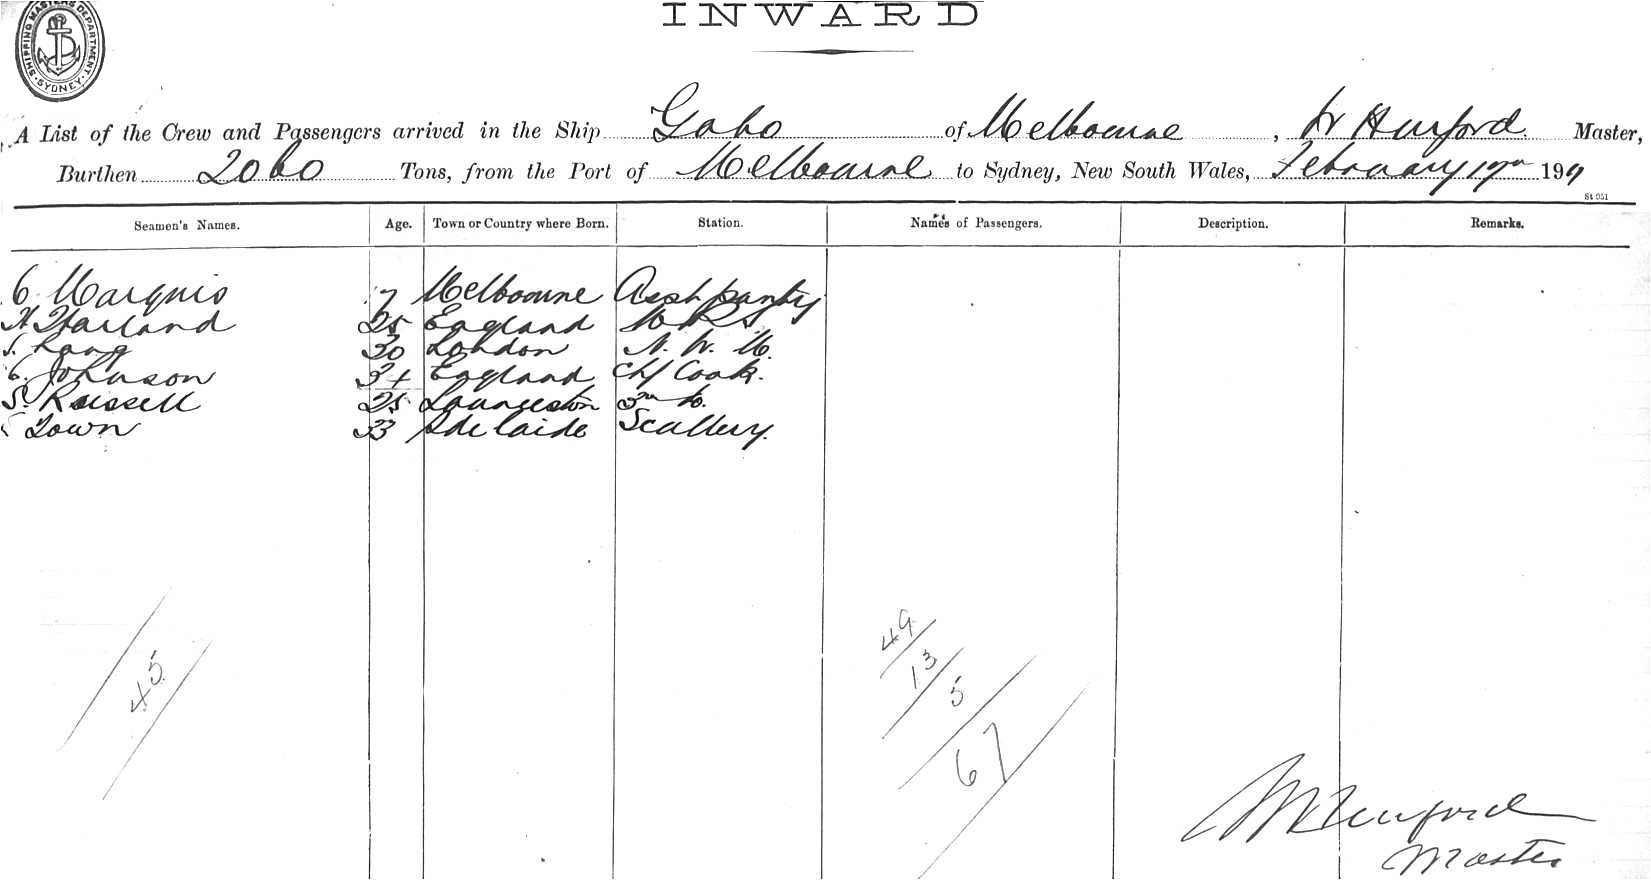 INWARD
SHIPPING MASTERS DEPARTMENT. SYDNEY.
A List of the Crew and Passengers arrived in the Ship Gabo of Melbourne, W Hurford Master,
Burthen 2060 Tons, from the Port of Melbourne to Sydney, New South Wales, February 19th 191
St 951
Seamen's Names. Age. Town or Country where Born. Station. Names of Passengers. Description. Remarks.
C Marquis Melbourne Asst pantry
H Harland 25 England
S. Lang 30 London
C. Johnson 34 England Chf Cook.
S. Russell 25 Launceston 3rd do.
Town 33 Adelaide Scullery.
45
49
13
5
67
W Hurford
Master